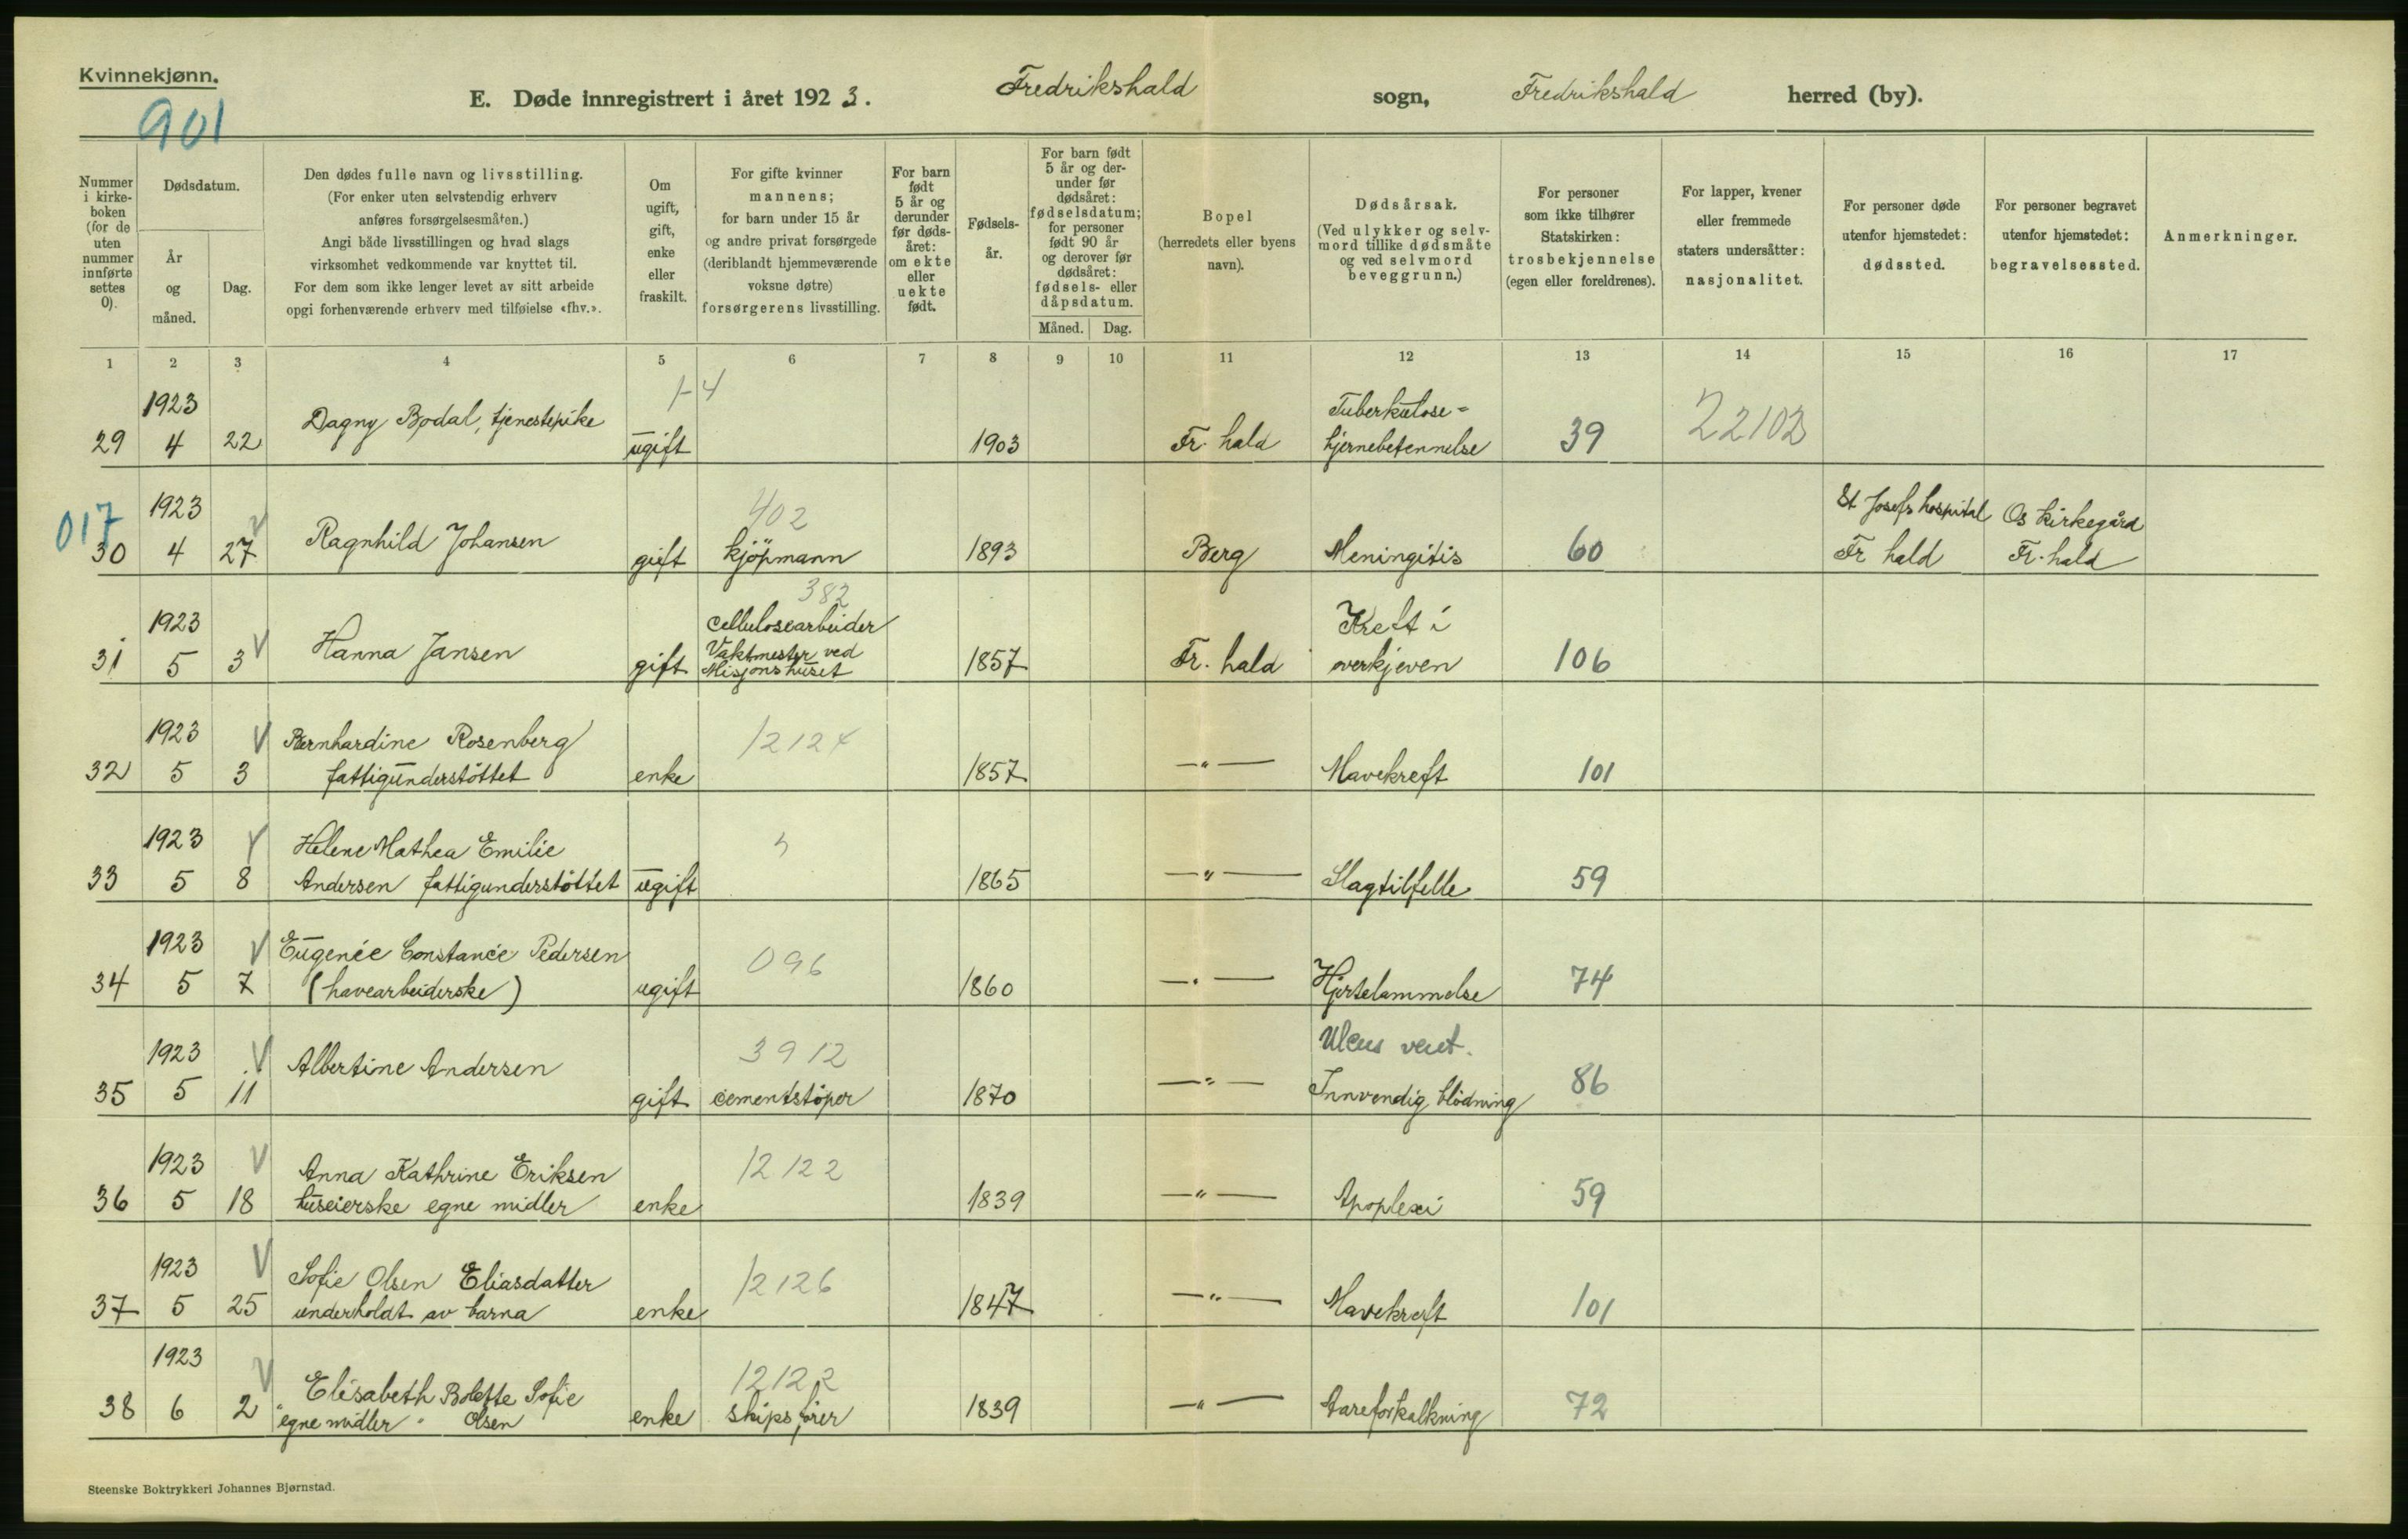 Kvinnekjønn.
901
E. Døde innregistrert i året 1923. Fredrikshald sogn, Fredrikshald herred (by).
Nummer i kirkeboken (for de uten nummer innførte settes 0).
Dødsdatum.
År og måned.
Dag.
Den dødes fulle navn og livsstilling.
(For enker uten selvstendig erhverv
anføres forsørgelsesmåten.)
Angi både livsstillingen og hvad slags
virksomhet vedkommende var knyttet til.
For dem som ikke lenger levet av sitt arbeide
opgi forhenværende erhverv med tilføielse «fhv.».
Om ugift, gift, enke eller fraskilt.
For gifte kvinner
mannens;
for barn under 15 år
og andre privat forsørgede
(deriblandt hjemmeværende
voksne døtre)
forsørgerens livsstilling.
For barn født 5 år og derunder før dødsåret: om ekte eller uekte født.
Fødselsår.
For barn født 5 år og derunder før dødsåret: fødselsdatum; for personer født 90 år og derover før dødsåret: fødsels- eller dåpsdatum.
Måned. Dag.
Bopel
(herredets eller byens
navn).
Dødsårsak.
(Ved ulykker og selvmord tillike dødsmåte og ved selvmord beveggrunn.)
For personer
som ikke tilhører
Statskirken:
trosbekjennelse
(egen eller foreldrenes).
For lapper, kvener
eller fremmede
staters undersåtter:
nasjonalitet.
For personer døde
utenfor hjemstedet:
dødssted.
For personer begravet
utenfor hjemstedet:
begravelsessted.
Anmerkninger.
1 2 3 4 5 6 7 8 9 10 11 12 13 14 15 16 17
1923 1-4 Tuberkulose-
29 4 22 Dagny Bodal, tjenestepike ugift 1903 Fr. hald hjernebetennelse 39 22102
017 1923 V 402 St Josefs hospital Os kirkegård
30 4 27 Ragnhild Johansen gift kjöpmann 1893 Berg Meningitis 60 Fr hald Fr. hald
382
1923 V cellulosearbeider Kreft i
31 5 3 Hanna Jansen gift Vaktmester ved Misjonshuset 1857 Fr. hald overkjeven 106
1923 V Bernhardine Rosenberg 12124
32 5 3 fattigunderstöttet enke 1857 —"— Mavekreft 101
1923 V Helene Mathea Emilie
33 5 8 Andersen fattigunderstöttet ugift 1865 —"— Slagtilfelle 59
1923 V Eugenée Constance Pedersen 096
34 5 7 (havearbeiderske) ugift 1860 —"— Hjertelammelse 74
1923 V Albertine Andersen 3912 Ulcus vent.
35 5 11 gift cementstöper 1870 —"— Innvendig blödning 86
1923 V Anna Kathrine Eriksen 12122
36 5 18 huseierske egne midler enke 1839 —"— Apoplexi 59
1923 V Sofie Olsen Eliasdatter 12126
37 5 25 underholdt av barna enke 1847 —"— Mavekreft 101
1923 V Elisabeth Bolette Sofie 12122
38 6 2 "egne midler" Olsen enke skipsfører 1839 —"— Aareforkalkning 72
Steenske Boktrykkeri Johannes Bjørnstad.